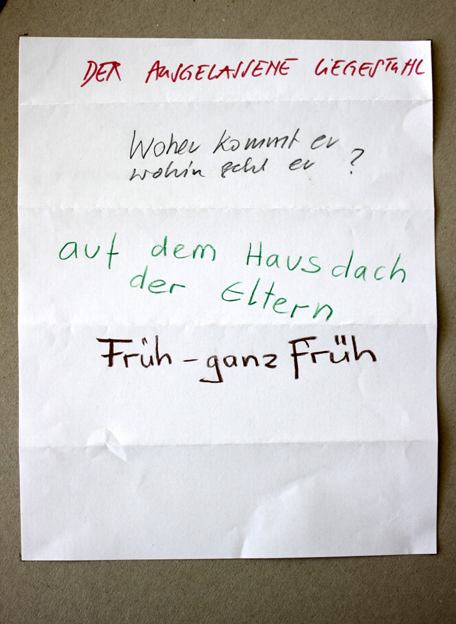 DER AUSGELASSENE LIEGESTUHL
Woher kommt er
wohin geht er ?
auf dem Hausdach
der Eltern
Früh - ganz Früh